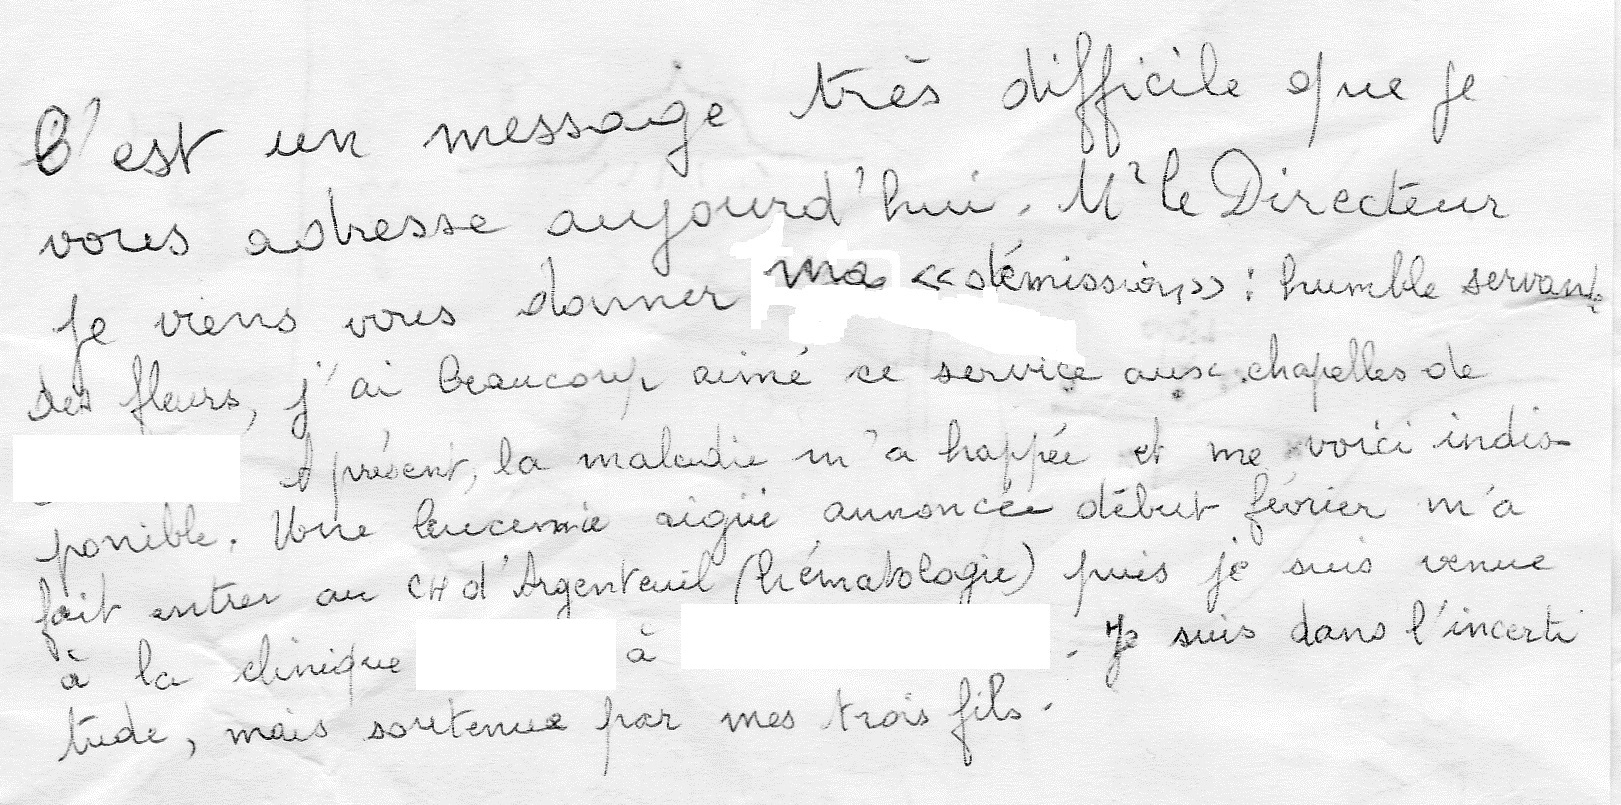 C'est un message très difficile que je
vous adresse aujourd'hui. Mr le Directeur
Je viens vous donner ma « démission » : humble servante
des fleurs, j'ai beaucoup aimé ce service aux chapelles de
A présent, la maladie m'a happée et me voici indis-
ponible. Une leucemie aigüe annoncée début février m'a
fait entrer au CH d'Argenteuil (hématologie) puis je suis venue
à la clinique à . Je suis dans l'incerti
tude, mais soutenue par mes trois fils.